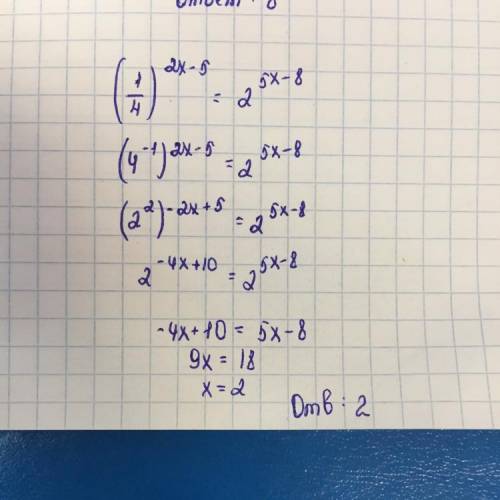 Ответ: 8
(1/4)^(2x-5) = 2^(5x-8)
(4^(-1))^(2x-5) = 2^(5x-8)
(2^2)^(-2x+5) = 2^(5x-8)
2^(-4x+10) = 2^(5x-8)
-4x+10 = 5x-8
9x = 18
x = 2
Отв: 2